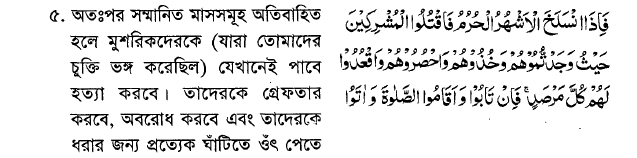 ৫. অতঃপর সম্মানিত মাসসমূহ অতিবাহিত
হলে মুশরিকদেরকে (যারা তোমাদের
চুক্তি ভঙ্গ করেছিল) যেখানেই পাবে
হত্যা করবে। তাদেরকে গ্রেফতার
করবে, অবরোধ করবে এবং তাদেরকে
ধরার জন্য প্রত্যেক ঘাঁটিতে ওঁৎ পেতে
فَاِذَا انْسَلَخَ الْاَشْهُرُ الْحُرُمُ فَاقْتُلُوا الْمُشْرِكِيْنَ
حَيْثُ وَجَدْتُّمُوْهُمْ وَخُذُوْهُمْ وَاحْصُرُوْهُمْ وَاقْعُدُوْا
لَهُمْ كُلَّ مَرْصَدٍ ۚ فَاِنْ تَابُوْا وَاَقَامُوا الصَّلٰوةَ وَاٰتَوُا